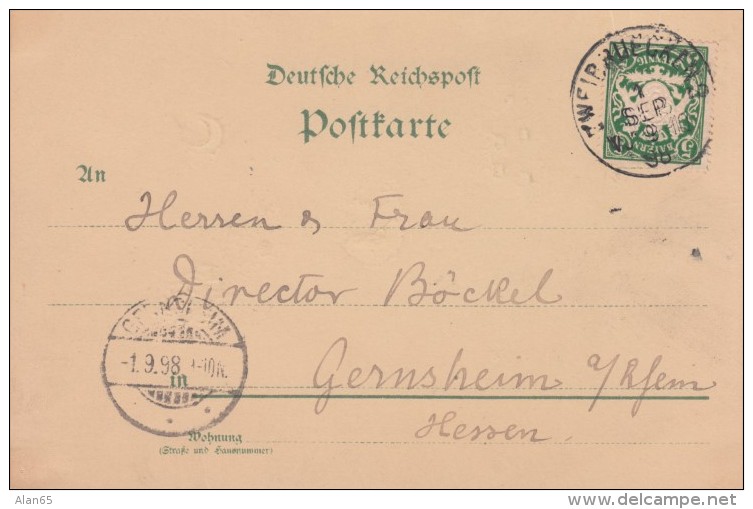 Deutsche Reichspost
Postkarte
An
Herren & Frau
Director Böckel
in
Gernsheim a/Rhein
Hessen.
Wohnung
(Straße und Hausnummer)
BAYERN
5
GERNSHEIM
-1.9.98
Alan65
delcampe.net